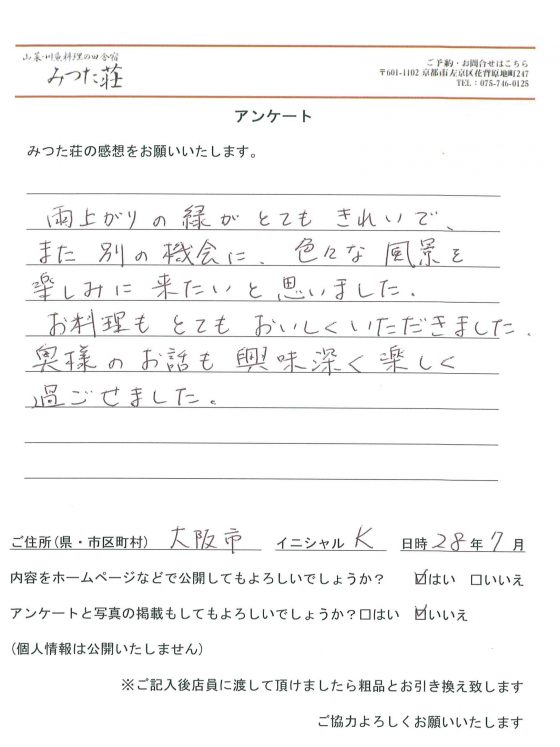 山菜・川魚料理の田舎宿
みつた荘
ご予約・お問合せはこちら
〒601-1102 京都市左京区花背原地町247
TEL：075-746-0125
アンケート
みつた荘の感想をお願いいたします。
雨上がりの緑がとてもきれいで、
また別の機会に、色々な風景を
楽しみに来たいと思いました.
お料理もとてもおいしくいただきました.
奥様のお話も興味深く楽しく
過ごせました。
ご住所(県・市区町村) 大阪市 イニシャル K 日時 28年 7月
内容をホームページなどで公開してもよろしいでしょうか？ ☑はい □いいえ
アンケートと写真の掲載もしてもよろしいでしょうか？□はい ☑いいえ
(個人情報は公開いたしません)
※ご記入後店員に渡して頂けましたら粗品とお引き換え致します
ご協力よろしくお願いいたします